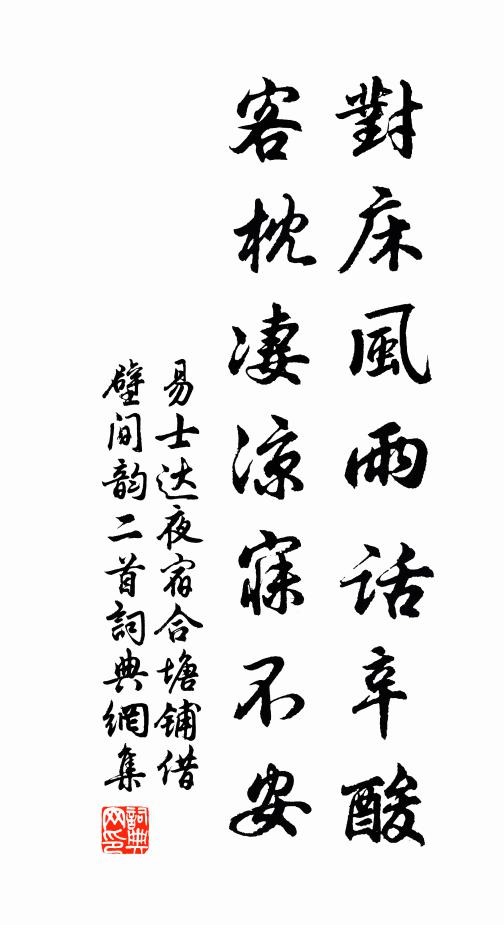 對床風雨話辛酸
客枕凄涼寐不安
易士达夜宿合塘鋪借
壁间韵二首詞典網集
詞典
网印